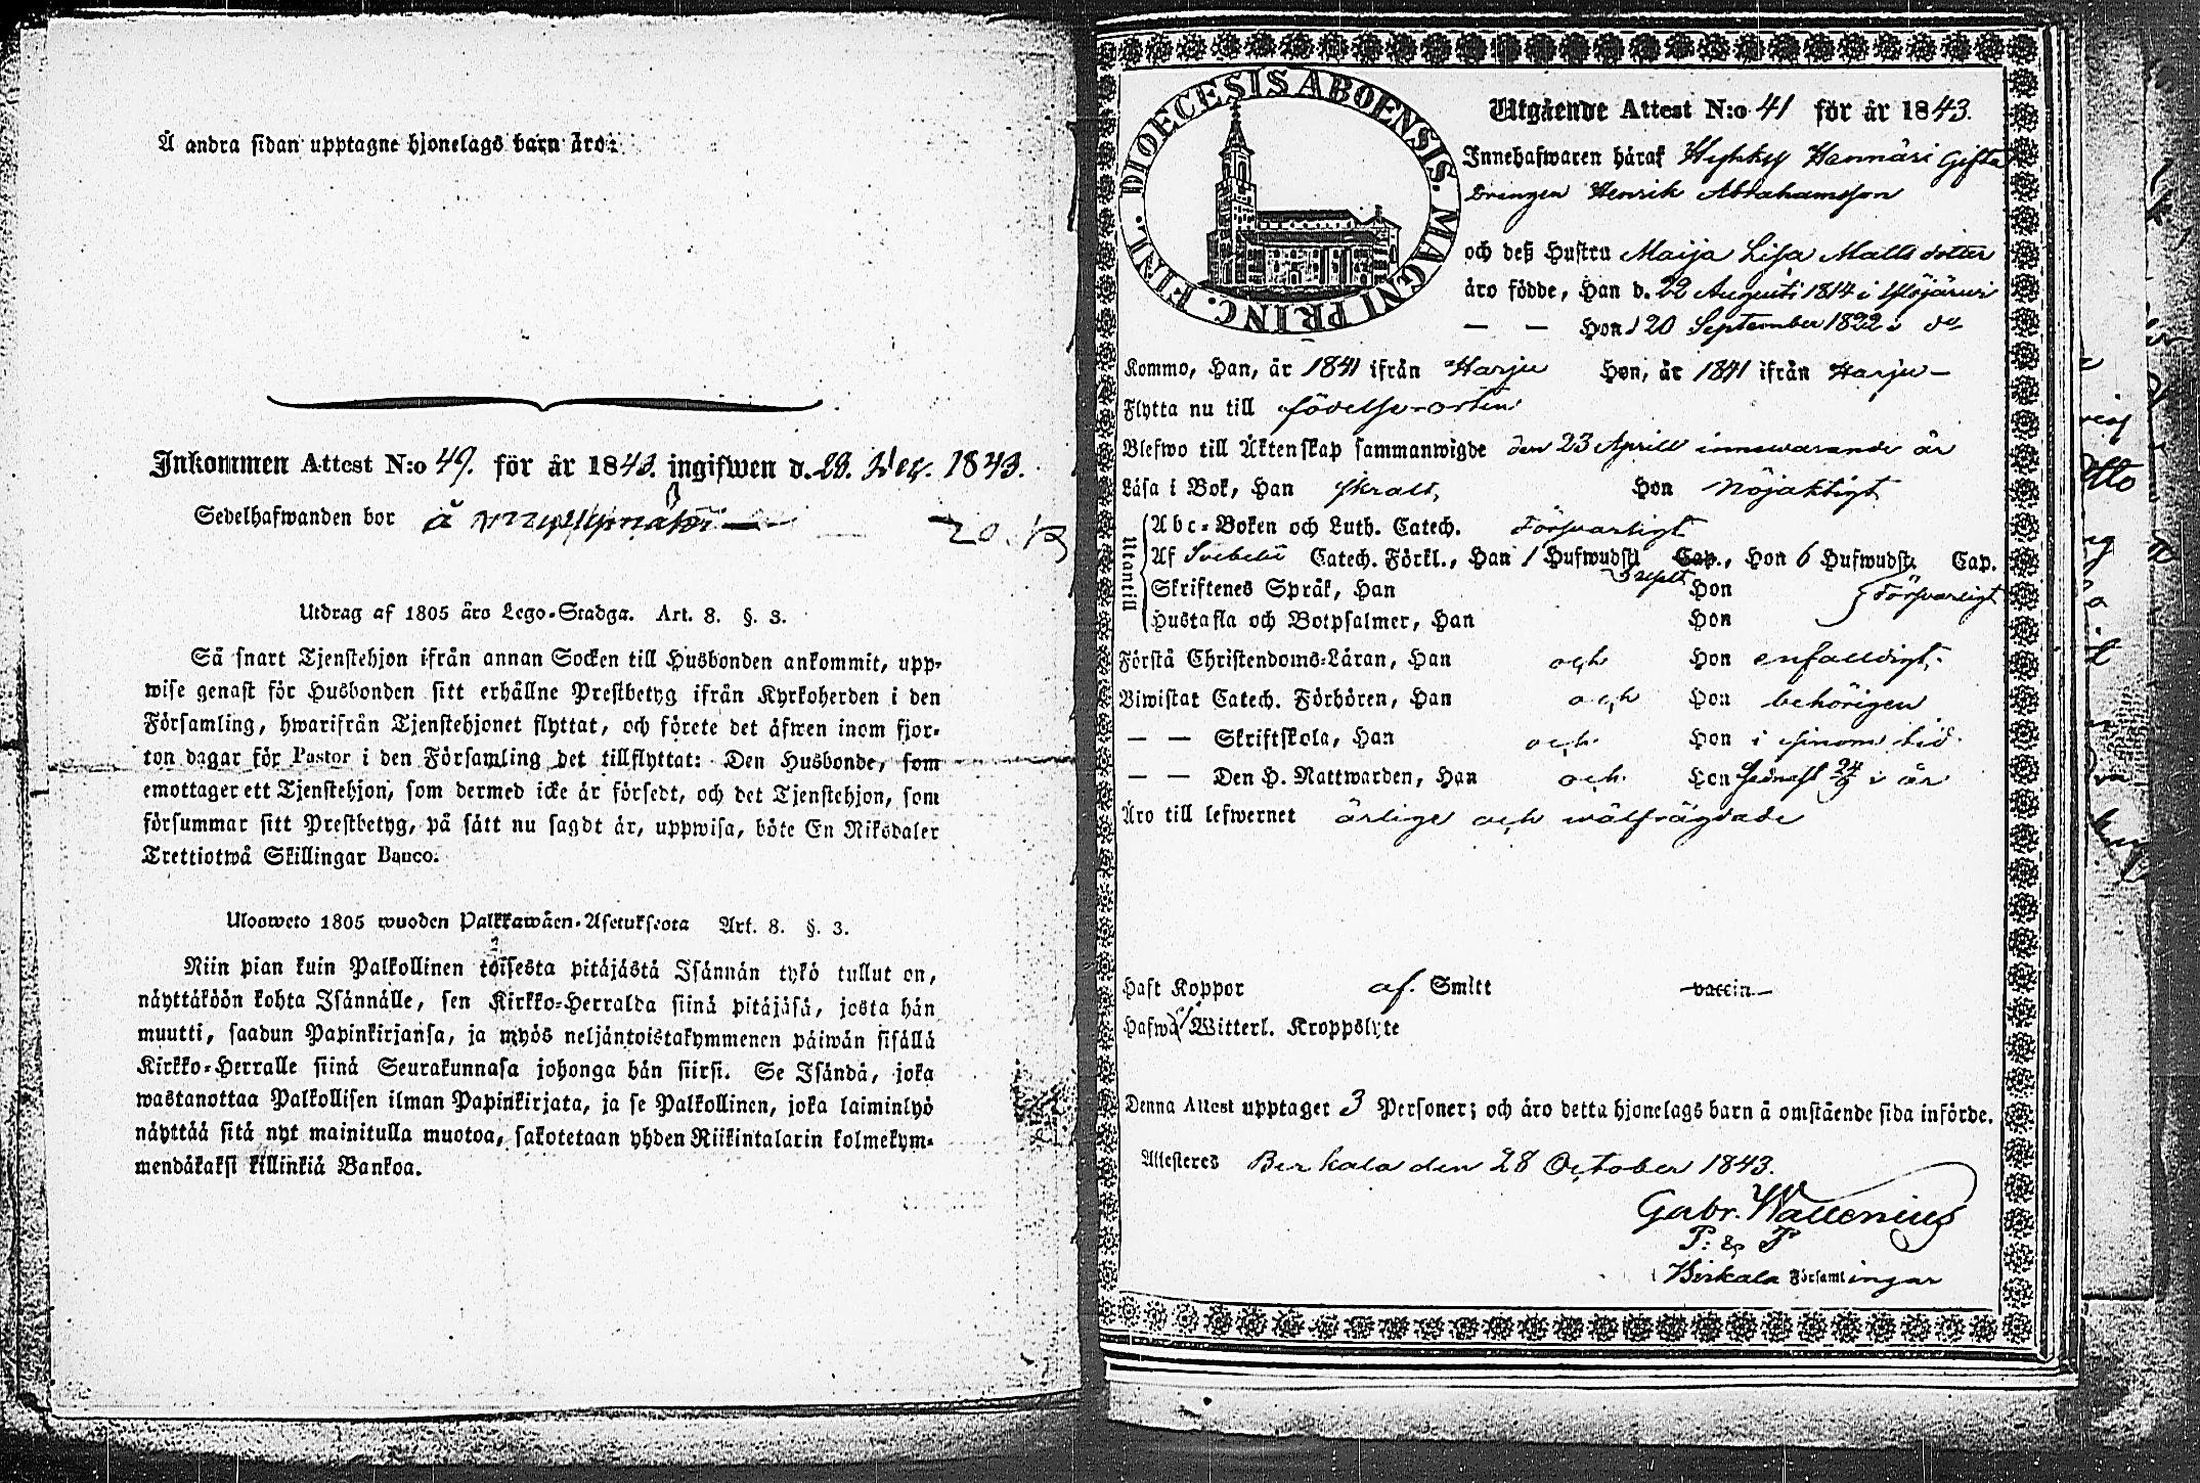 Å andra sidan upptagne hjonelags barn äro:
Inkommen Attest N:o 49. för år 1843. ingifwen d. 28. Dec. 1843.
Sedelhafwanden bor å
Utdrag af 1805 åro Lego-Stadga. Art. 8. §. 3.
Så snart Tjenstehjon ifrån annan Socken till Husbonden ankommit, upp-
wise genast för Husbonden sitt erhållne Prestbetyg ifrån Kyrkoherden i den
Församling, hwarifrån Tjenstehjonet flyttat, och förete det äfwen inom fjor-
ton dagar för Pastor i den Församling det tillflyttat: Den Husbonde, som
emottager ett Tjenstehjon, som dermed icke är försedt, och det Tjenstehjon, som
försummar sitt Prestbetyg, på sätt nu sagdt är, uppwisa, böte En Riksdaler
Trettiotwå Skillingar Banco.
Ulosweto 1805 wuoden Palkkawäen-Asetuksesta Art. 8. §. 3.
Niin pian kuin Palkollinen toisesta pitäjästä Isännän tykö tullut on,
näyttäköön kohta Isännälle, sen Kirkko-Herralda siinä pitäjäsä, josta hän
muutti, saadun Papinkirjansa, ja myös neljäntoistakymmenen päiwän sisällä
Kirkko-Herralle siinä Seurakunnasa johonga hän siirsi. Se Isändä, joka
wastanottaa Palkollisen ilman Papinkirjata, ja se Palkollinen, joka laiminlyö
näyttää sitä nyt mainitulla muotoa, sakotetaan yhden Riikintalarin kolmekym-
mendäkaksi killinkiä Bankoa.
DIOECESIS ABOENSIS. MAGNI PRINC. FINL.
Utgående Attest N:o 41 för år 1843.
Innehafwaren häraf Hannäri Gifta
Drengen Henrik Abrahamsson
och deß Hustru Maija Lisa Matts dotter
äro födde, Han d. 22 Augusti 1814 i Ylöjärwi
— — Hon d 20 September 1822 i do
Kommo, Han, år 1841 ifrån Harju Hon, år 1841 ifrån Harju —
Flytta nu till födelse-orten
Blefwo till Äktenskap sammanwigde den 23 Aprill innewarande år
Läsa i Bok, Han skralt, Hon Nöjaktigt
Utantill
Abc-Boken och Luth. Catech. Försvarligt
Af Svebelii Catech. Förkl., Han 1 Hufwudst. Cap., Hon 6 Hufwudst. Cap.
Skriftenes Språk, Han Hon Försvarligt
Hustafla och Botpsalmer, Han Hon
Förstå Christendoms-Läran, Han och Hon enfaldigt.
Biwistat Catech. Förhören, Han och Hon behörigen
— — Skriftskola, Han och Hon i sinom tid.
— — Den H. Nattwarden, Han och Hon sednast 24/9 i år
Äro till lefwernet ärlige och wälfrägdade
Haft Koppor af Smitt vaccin
Hafwa Witterl. Kroppslyte
Denna Attest upptager 3 Personer; och äro detta hjonelags barn å omstående sida införde.
Attesteres Birkala den 28 October 1843.
Gabr. Wallenius
P: & P
i Birkala Församlingar